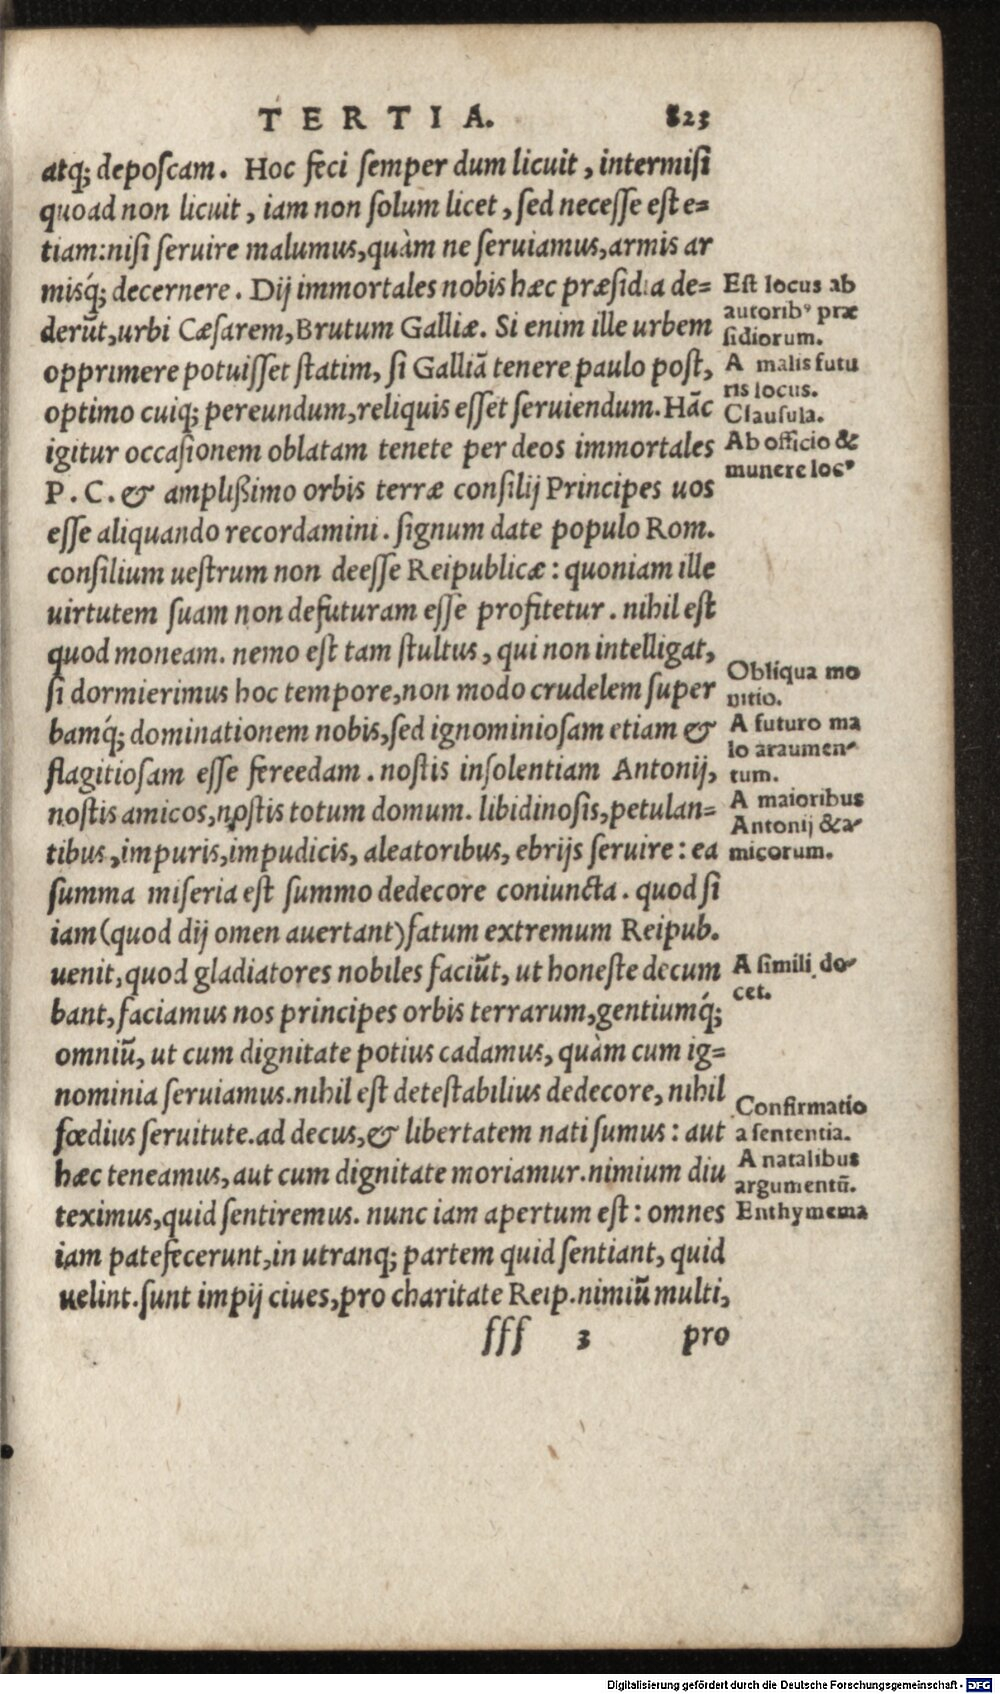 TERTIA. 823
atq; deposcam. Hoc feci semper dum licuit, intermisi
quoad non licuit, iam non solum licet, sed necesse est e=
tiam: nisi seruire malumus, quàm ne seruiamus, armis ar
misq́; decernere. Dij immortales nobis hæc præsidia de=
derūt, urbi Cæsarem, Brutum Galliæ. Si enim ille urbem
opprimere potuisset statim, si Galliā tenere paulo post,
optimo cuiq; pereundum, reliquis esset seruiendum. Hāc
igitur occasionem oblatam tenete per deos immortales
P. C. & amplißimo orbis terræ consilij Principes uos
esse aliquando recordamini. signum date populo Rom.
consilium uestrum non deesse Reipublicæ: quoniam ille
uirtutem suam non defuturam esse profitetur. nihil est
quod moneam. nemo est tam stultus, qui non intelligat,
si dormierimus hoc tempore, non modo crudelem super
bamq́; dominationem nobis, sed ignominiosam etiam &
flagitiosam esse fereedam. nostis insolentiam Antonij,
nostis amicos, nostis totum domum. libidinosis, petulan=
tibus, impuris, impudicis, aleatoribus, ebrijs seruire: ea
summa miseria est summo dedecore coniuncta. quod si
iam (quod dij omen auertant) fatum extremum Reipub.
uenit, quod gladiatores nobiles faciūt, ut honeste decum
bant, faciamus nos principes orbis terrarum, gentiumq́;
omniū, ut cum dignitate potius cadamus, quàm cum ig=
nominia seruiamus. nihil est detestabilius dedecore, nihil
fœdius seruitute. ad decus, & libertatem nati sumus: aut
hæc teneamus, aut cum dignitate moriamur. nimium diu
teximus, quid sentiremus. nunc iam apertum est: omnes
iam patefecerunt, in utranq; partem quid sentiant, quid
uelint. sunt impij ciues, pro charitate Reip. nimiū multi,
fff 3 pro
Est locus ab
autoribꝰ præ
sidiorum.
A malis futu
ris locus.
Clausula.
Ab officio &
munere locꝰ
Obliqua mo
nitio.
A futuro ma
lo araumen-
tum.
A maioribus
Antonij & a-
micorum.
A simili do-
cet.
Confirmatio
a sententia.
A natalibus
argumentū.
Enthymema
Digitalisierung gefördert durch die Deutsche Forschungsgemeinschaft - DFG